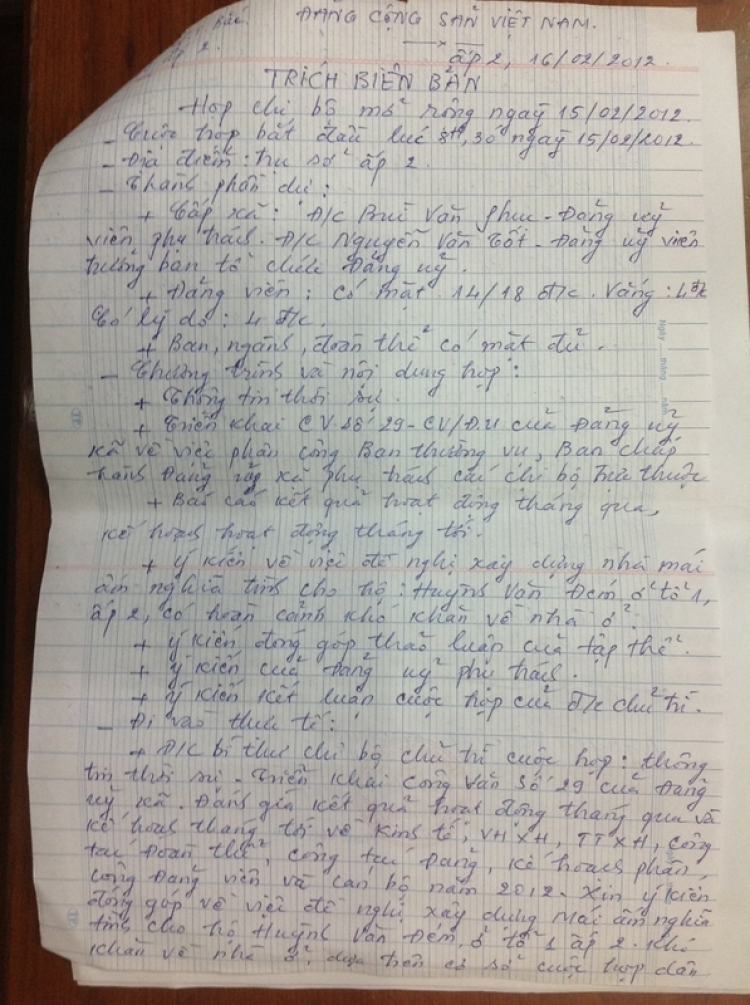 ĐẢNG CỘNG SẢN VIỆT NAM.
ấp 2.
ấp 2, 16/02/2012.
TRÍCH BIÊN BẢN
Họp chi bộ mở rộng ngày 15/02/2012.
- Cuộc họp bắt đầu lúc 8H,30 ngày 15/02/2012.
- Địa điểm: trụ sở ấp 2.
- Thành phần dự:
+ Cấp xã: Đ/c Bùi Văn Phục - Đảng uỷ
viên phụ trách. Đ/c Nguyễn Văn Tốt - Đảng uỷ viên
trưởng ban tổ chức Đảng uỷ.
+ Đảng viên: có mặt 14/18 đ/c. Vắng: 4đ/c
Có lý do: 4 đ/c.
+ Ban, ngành, đoàn thể có mặt đủ.
- Chương trình và nội dung họp:
+ Thông tin thời sự.
+ Triển khai CV số 29-CV/Đ.U của Đảng uỷ
xã về việc phân công Ban thường vụ, Ban chấp
hành Đảng bộ xã phụ trách các chi bộ trực thuộc
+ Báo cáo kết quả hoạt động tháng qua,
kế hoạch hoạt động tháng tới.
+ Ý kiến về việc đề nghị xây dựng nhà mái
ấm nghĩa tình cho hộ: Huỳnh Văn Đém ở tổ 1,
ấp 2, có hoàn cảnh khó khăn về nhà ở.
+ Ý kiến đóng góp thảo luận của tập thể.
+ Ý kiến của Đảng uỷ phụ trách.
+ Ý kiến kết luận cuộc họp của đ/c chủ trì.
- Đi vào thực tế:
+ Đ/c bí thư chi bộ chủ trì cuộc họp: thông
tin thời sự - Triển khai công văn số 29 của Đảng
uỷ xã. Đánh giá kết quả hoạt động tháng qua và
kế hoạch tháng tới về kinh tế, VHXH, TTXH, công
tác Đoàn thể, công tác Đảng, kế hoạch phân
công Đảng viên và cán bộ năm 2012. Xin ý kiến
đóng góp về việc đề nghị xây dựng Mái ấm nghĩa
tình cho hộ Huỳnh Văn Đém, ở tổ 1 ấp 2. khó
khăn về nhà ở, dựa trên cơ sở cuộc họp dân
Ngày tháng năm